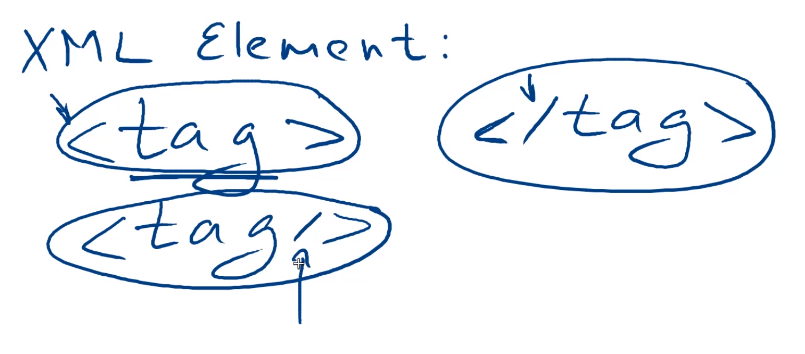 XML Element:
<tag> </tag>
<tag/>